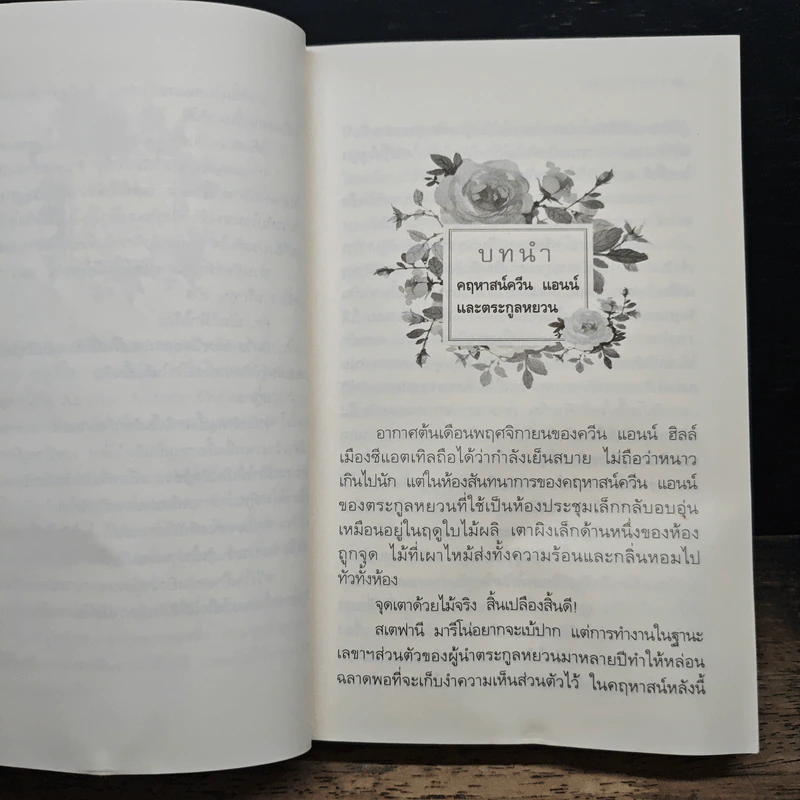 บทนำ
คฤหาสน์ควีน แอนน์
และตระกูลหยวน
อากาศต้นเดือนพฤศจิกายนของควีน แอนน์ ฮิลล์
เมืองซีแอตเทิลถือได้ว่ากำลังเย็นสบาย ไม่ถือว่าหนาว
เกินไปนัก แต่ในห้องสันทนาการของคฤหาสน์ควีน แอนน์
ของตระกูลหยวนที่ใช้เป็นห้องประชุมเล็กกลับอบอุ่น
เหมือนอยู่ในฤดูใบไม้ผลิ เตาผิงเล็กด้านหนึ่งของห้อง
ถูกจุด ไม้ที่เผาไหม้ส่งทั้งความร้อนและกลิ่นหอมไป
ทัวทั้งห้อง
จุดเตาด้วยไม้จริง สิ้นเปลืองสิ้นดี!
สเตฟานี มารีโน่อยากจะเบ้ปาก แต่การทำงานในฐานะ
เลขาฯส่วนตัวของผู้นำตระกูลหยวนมาหลายปีทำให้หล่อน
ฉลาดพอที่จะเก็บงำความเห็นส่วนตัวไว้ ในคฤหาสน์หลังนี้